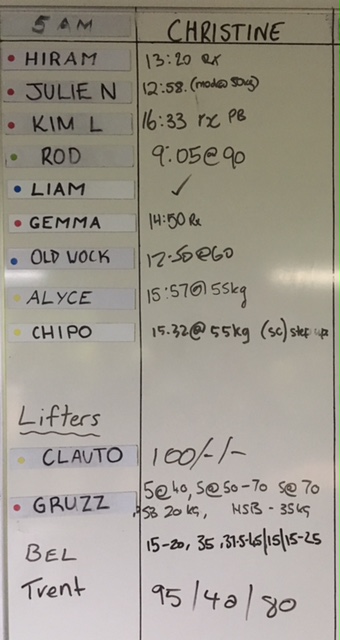 5 AM CHRISTINE
HIRAM 13:20 Rx
JULIE N 12:58. (mod@50kg)
KIM L 16:33 rx PB
ROD 9:05@90
LIAM ✓
GEMMA 14:50 Rx
OLD WOCK 12:50@60
ALYCE 15:57@55kg
CHIPO 15.32@55kg (sc) step ups
Lifters
CLAUTO 100/-/-
5@40, 5@50-70 5@70
GRUZZ SB 20 kg, HSB - 35kg
BEL 15-20, 35, 15/15-25
Trent 95/40/80